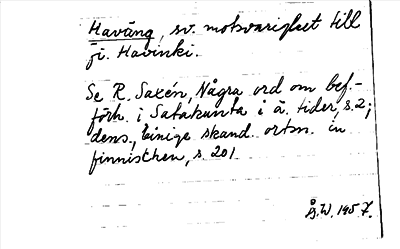 Haväng, sv. motsvarighet till
fi. Havinki.
Se R. Saxén, Några ord om bef.-
förh. i Satakunta i ä. tider, s. 2;
dens., Einige skand. ortsn. in
finnischen, s. 201.
Å.W. 1957.